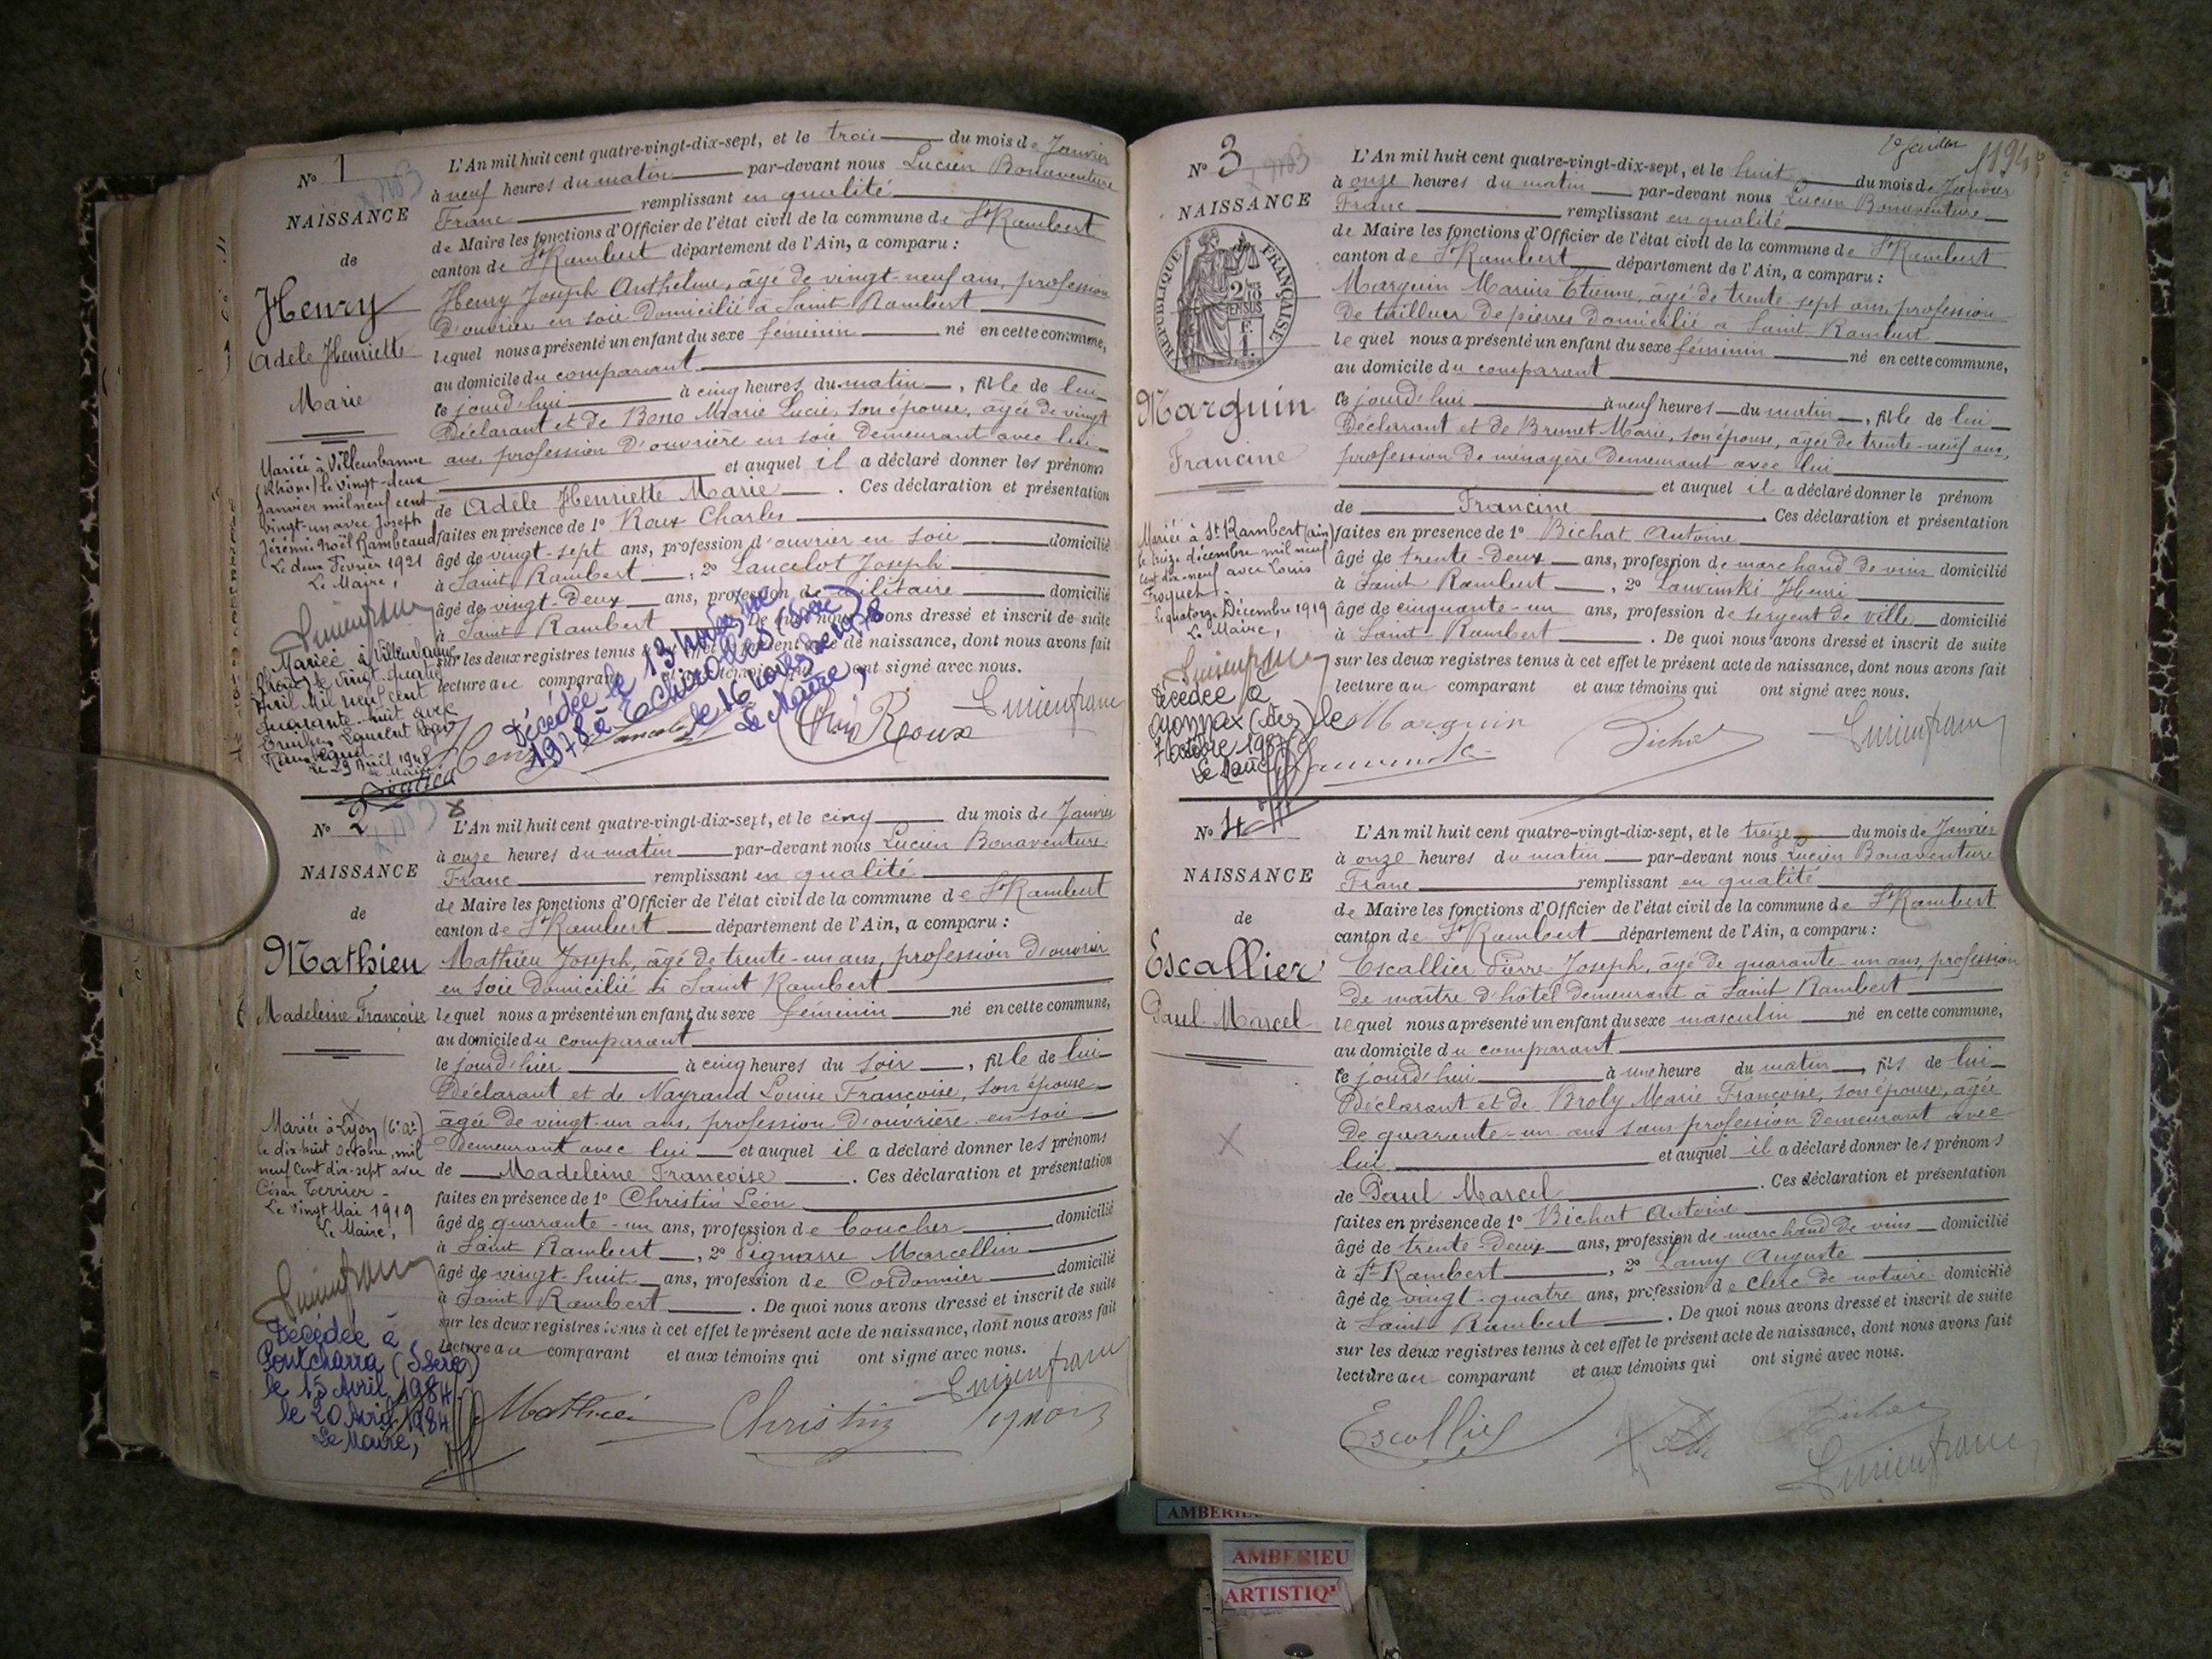 N° 1
NAISSANCE
de
Henry
Adèle Henriette
Marie
Mariée à Villeurbanne
(Rhône) le vingt-deux
Janvier mil neuf cent
vingt-un avec Joseph
Jérémie Noël Rambeaud
Le deux Février 1921
Le Maire,
Mariée à Villeurbanne
(Rhône) le vingt-quatre
Avril mil neuf cent
quarante-huit avec
Emilien Laurent
le 29 Avril 1948
Le Maire
L'An mil huit cent quatre-vingt-dix-sept, et le trois du mois de Janvier
à neuf heures du matin par-devant nous Lucien Bonaventure
Franc remplissant en qualité
de Maire les fonctions d'Officier de l'état civil de la commune de St Rambert
canton de St Rambert département de l'Ain, a comparu :
Henry Joseph Anthelme, âgé de vingt-neuf ans, profession
d'ouvrier en soie domicilié à Saint Rambert
lequel nous a présenté un enfant du sexe féminin né en cette commune,
au domicile du comparant
le jourd'hui à cinq heures du matin, fille de lui
Déclarant et de Bono Marie Lucie, son épouse, âgée de vingt
ans, profession d'ouvrière en soie demeurant avec lui
et auquel il a déclaré donner les prénoms
de Adèle Henriette Marie. Ces déclaration et présentation
faites en présence de 1° Roux Charles
âgé de vingt-sept ans, profession d'ouvrier en soie domicilié
à Saint Rambert, 2° Lancelot Joseph
âgé de vingt-deux ans, profession de militaire domicilié
à Saint Rambert. De quoi nous avons dressé et inscrit de suite
sur les deux registres tenus à cet effet le présent acte de naissance, dont nous avons fait
lecture au comparant et aux témoins qui ont signé avec nous.
Décédée le 13 novembre
1978 à Echirolles (Isère)
le 16 novembre 1978
Le Maire,
Henry Lancelot Ch Roux Lucien franc
N° 2
NAISSANCE
de
Mathieu
Madeleine Françoise
Mariée à Lyon (6e ar)
le dix-huit octobre, mil
neuf cent dix-sept avec
César Terrier
Le vingt Mai 1919
Le Maire,
Lucien franc
Décédée à
Pontcharra (Isère)
le 15 Avril 1984
le 20 Avril 1984
Le Maire,
L'An mil huit cent quatre-vingt-dix-sept, et le cinq du mois de Janvier
à onze heures du matin par-devant nous Lucien Bonaventure
Franc remplissant en qualité
de Maire les fonctions d'Officier de l'état civil de la commune de St Rambert
canton de St Rambert département de l'Ain, a comparu :
Mathieu Joseph, âgé de trente-un ans, profession d'ouvrier
en soie domicilié à Saint Rambert
lequel nous a présenté un enfant du sexe féminin né en cette commune,
au domicile du comparant
le jourd'hier à cinq heures du soir, fille de lui
Déclarant et de Nayrand Louise Françoise, son épouse
âgée de vingt-un ans, profession d'ouvrière en soie
demeurant avec lui et auquel il a déclaré donner les prénoms
de Madeleine Françoise. Ces déclaration et présentation
faites en présence de 1° Christin Léon
âgé de quarante-un ans, profession de boucher domicilié
à Saint Rambert, 2° Pignarre Marcellin
âgé de vingt-huit ans, profession de Cordonnier domicilié
à Saint Rambert. De quoi nous avons dressé et inscrit de suite
sur les deux registres tenus à cet effet le présent acte de naissance, dont nous avons fait
lecture au comparant et aux témoins qui ont signé avec nous.
Mathieu Christin Lucien franc
N° 3
NAISSANCE
RÉPUBLIQUE FRANÇAISE
Marguin
Francine
Mariée à St Rambert (ain)
le treize décembre mil neuf
cent dix-neuf avec Louis
Froquet
Le quatorze Décembre 1919
Le Maire,
Décédée à
Oyonnax (Ain) le
7 octobre 1987
Le Maire
2e feuillet
L'An mil huit cent quatre-vingt-dix-sept, et le huit du mois de Janvier
à onze heures du matin par-devant nous Lucien Bonaventure
Franc remplissant en qualité
de Maire les fonctions d'Officier de l'état civil de la commune de St Rambert
canton de St Rambert département de l'Ain, a comparu :
Marguin Marius Etienne, âgé de trente-sept ans, profession
de tailleur de pierres domicilié à Saint Rambert
lequel nous a présenté un enfant du sexe féminin né en cette commune,
au domicile du comparant
le jourd'hui à neuf heures du matin, fille de lui
Déclarant et de Brunet Marie, son épouse, âgée de trente-neuf ans,
profession de ménagère demeurant avec lui
et auquel il a déclaré donner le prénom
de Francine. Ces déclaration et présentation
faites en présence de 1° Bichat Antoine
âgé de trente-deux ans, profession de marchand de vins domicilié
à Saint Rambert, 2° Lawinski Henri
âgé de cinquante-un ans, profession de sergent de ville domicilié
à Saint Rambert. De quoi nous avons dressé et inscrit de suite
sur les deux registres tenus à cet effet le présent acte de naissance, dont nous avons fait
lecture au comparant et aux témoins qui ont signé avec nous.
Marguin Bichat Lucien franc
N° 4
NAISSANCE
de
Escallier
Paul Marcel
L'An mil huit cent quatre-vingt-dix-sept, et le treize du mois de Janvier
à onze heures du matin par-devant nous Lucien Bonaventure
Franc remplissant en qualité
de Maire les fonctions d'Officier de l'état civil de la commune de St Rambert
canton de St Rambert département de l'Ain, a comparu :
Escallier Pierre Joseph, âgé de quarante-un ans, profession
de maître d'hôtel demeurant à Saint Rambert
lequel nous a présenté un enfant du sexe masculin né en cette commune,
au domicile du comparant
le jourd'hui à une heure du matin, fils de lui
Déclarant et de Broly Marie Françoise, son épouse, âgée
de quarante-un ans sans profession demeurant avec
lui et auquel il a déclaré donner les prénoms
de Paul Marcel. Ces déclaration et présentation
faites en présence de 1° Bichat Antoine
âgé de trente-deux ans, profession de marchand de vins domicilié
à St Rambert, 2° Lamy Auguste
âgé de vingt-quatre ans, profession de clerc de notaire domicilié
à Saint Rambert. De quoi nous avons dressé et inscrit de suite
sur les deux registres tenus à cet effet le présent acte de naissance, dont nous avons fait
lecture au comparant et aux témoins qui ont signé avec nous.
Escallier Bichat
Lucien franc
AMBERIEU
ARTISTIQ